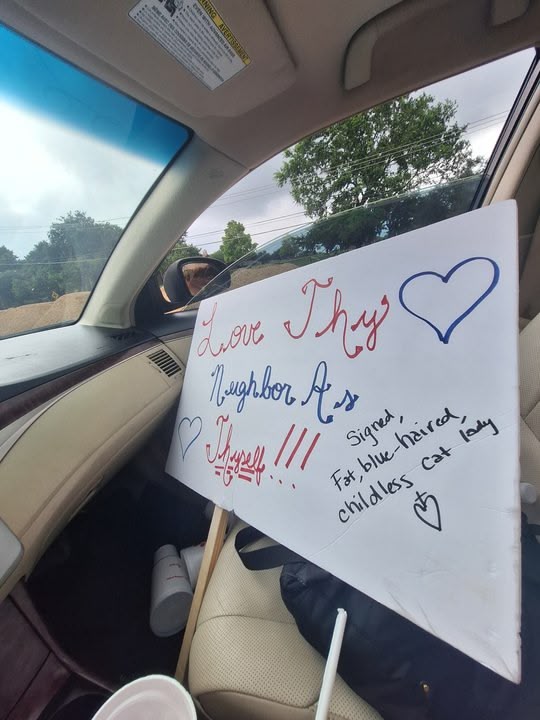 WARNING AVERTISSEMENT
Love Thy
Neighbor As
Thyself!!!
Signed,
Fat, blue-haired,
childless cat lady